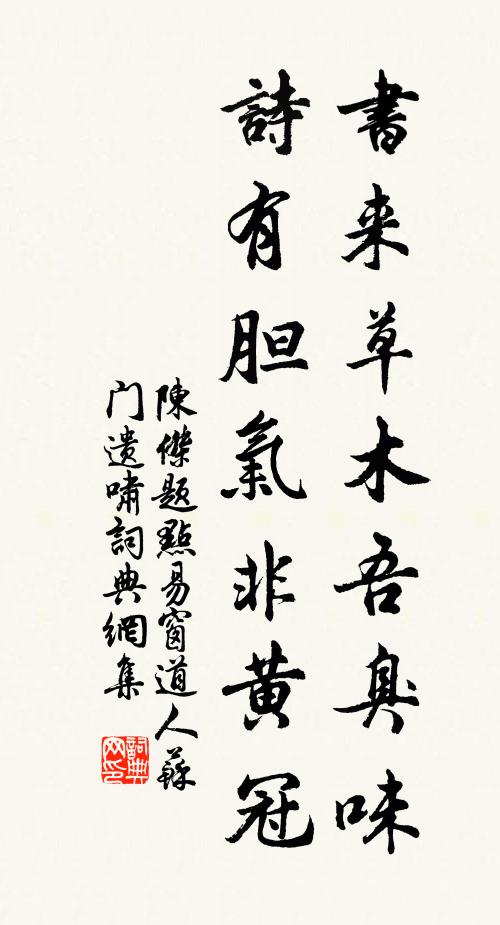 書来草木吾臭味
詩有胆氣非黄冠
陳傑題點易窗道人蘇
门遗嘯詞典網集
詞典
网印